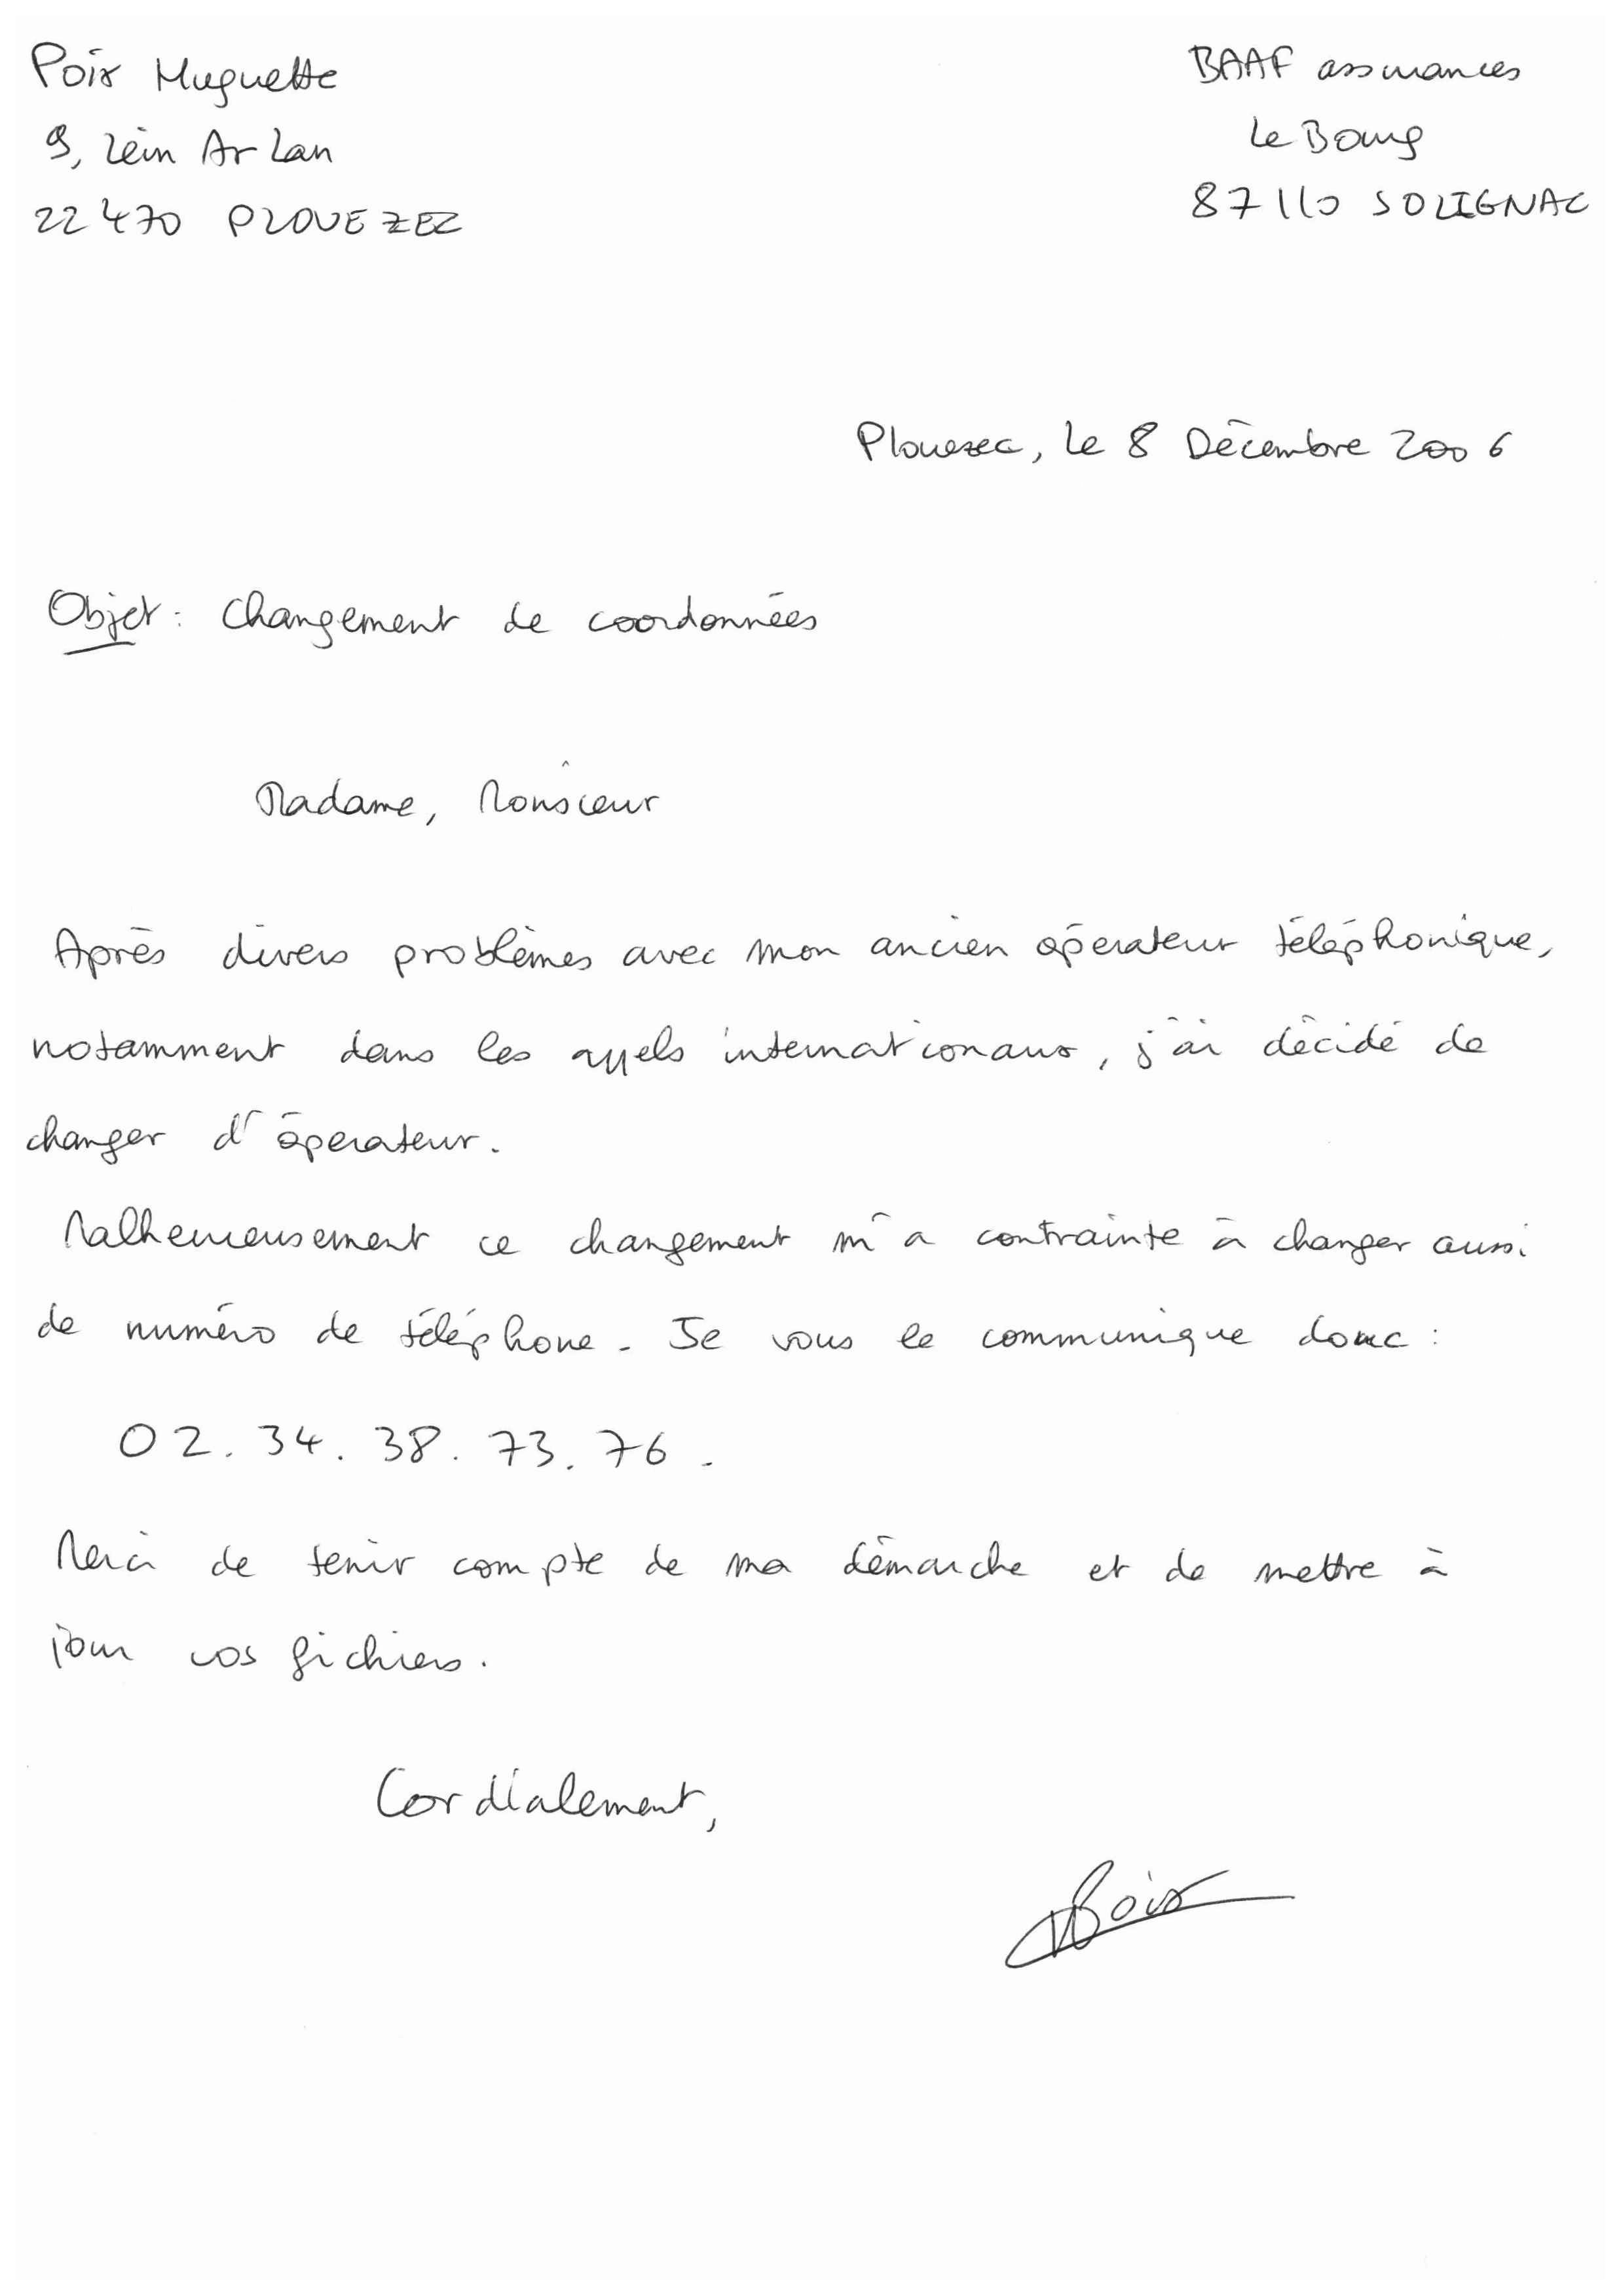 Poix Muguette
9, Lein Ar Lan
22470 PLOUEZEC
BAAF assurances
Le Bourg
87110 SOLIGNAC
Plouezec, le 8 Décembre 2006
Objet : Changement de coordonnées
Madame, Monsieur
Après divers problèmes avec mon ancien opérateur téléphonique,
notamment dans les appels internationaux, j'ai décidé de
changer d'opérateur.
Malheureusement ce changement m'a contrainte à changer aussi
de numéro de téléphone. Je vous le communique donc :
02.34.38.73.76.
Merci de tenir compte de ma démarche et de mettre à
jour vos fichiers.
Cordialement,
Poix